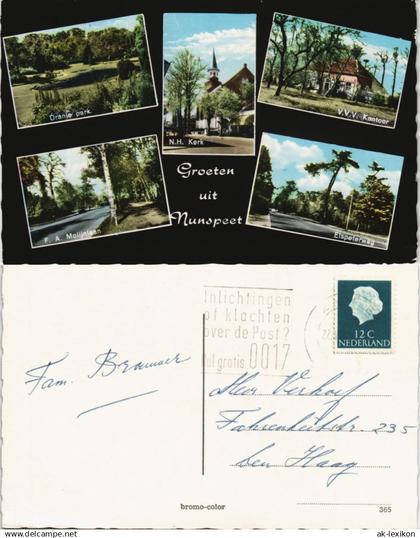 Oranje park
N.H. Kerk
V.V.V. Kantoor
Groeten
uit
Nunspeet
F. A. Molijnlaan
Elspeterweg
Inlichtingen
of klachten
over de Post?
Bel gratis 0017
12 C
NEDERLAND
Fam. Brouwer
Heer Verhoef
Fahrenheitstr. 235
Den Haag
bromo-color
365
© ak-lexikon.com